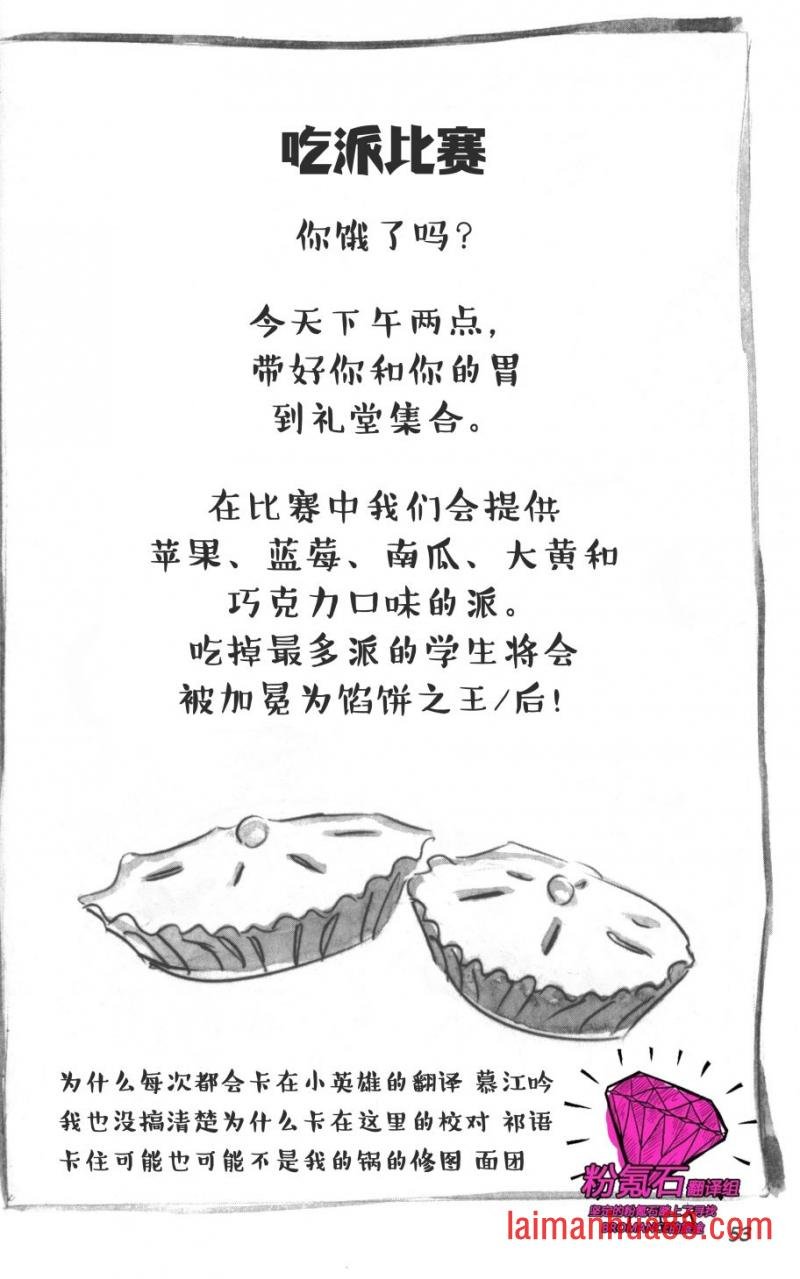 吃派比赛
你饿了吗?
今天下午两点,
带好你和你的胃
到礼堂集合。
在比赛中我们会提供
苹果、蓝莓、南瓜、大黄和
巧克力口味的派。
吃掉最多派的学生将会
被加冕为馅饼之王/后!
为什么每次都会卡在小英雄的翻译 慕江吟
我也没搞清楚为什么卡在这里的校对 祁语
卡住可能也可能不是我的锅的修图 面团
粉氪石翻译组
laimanhua88.com
53